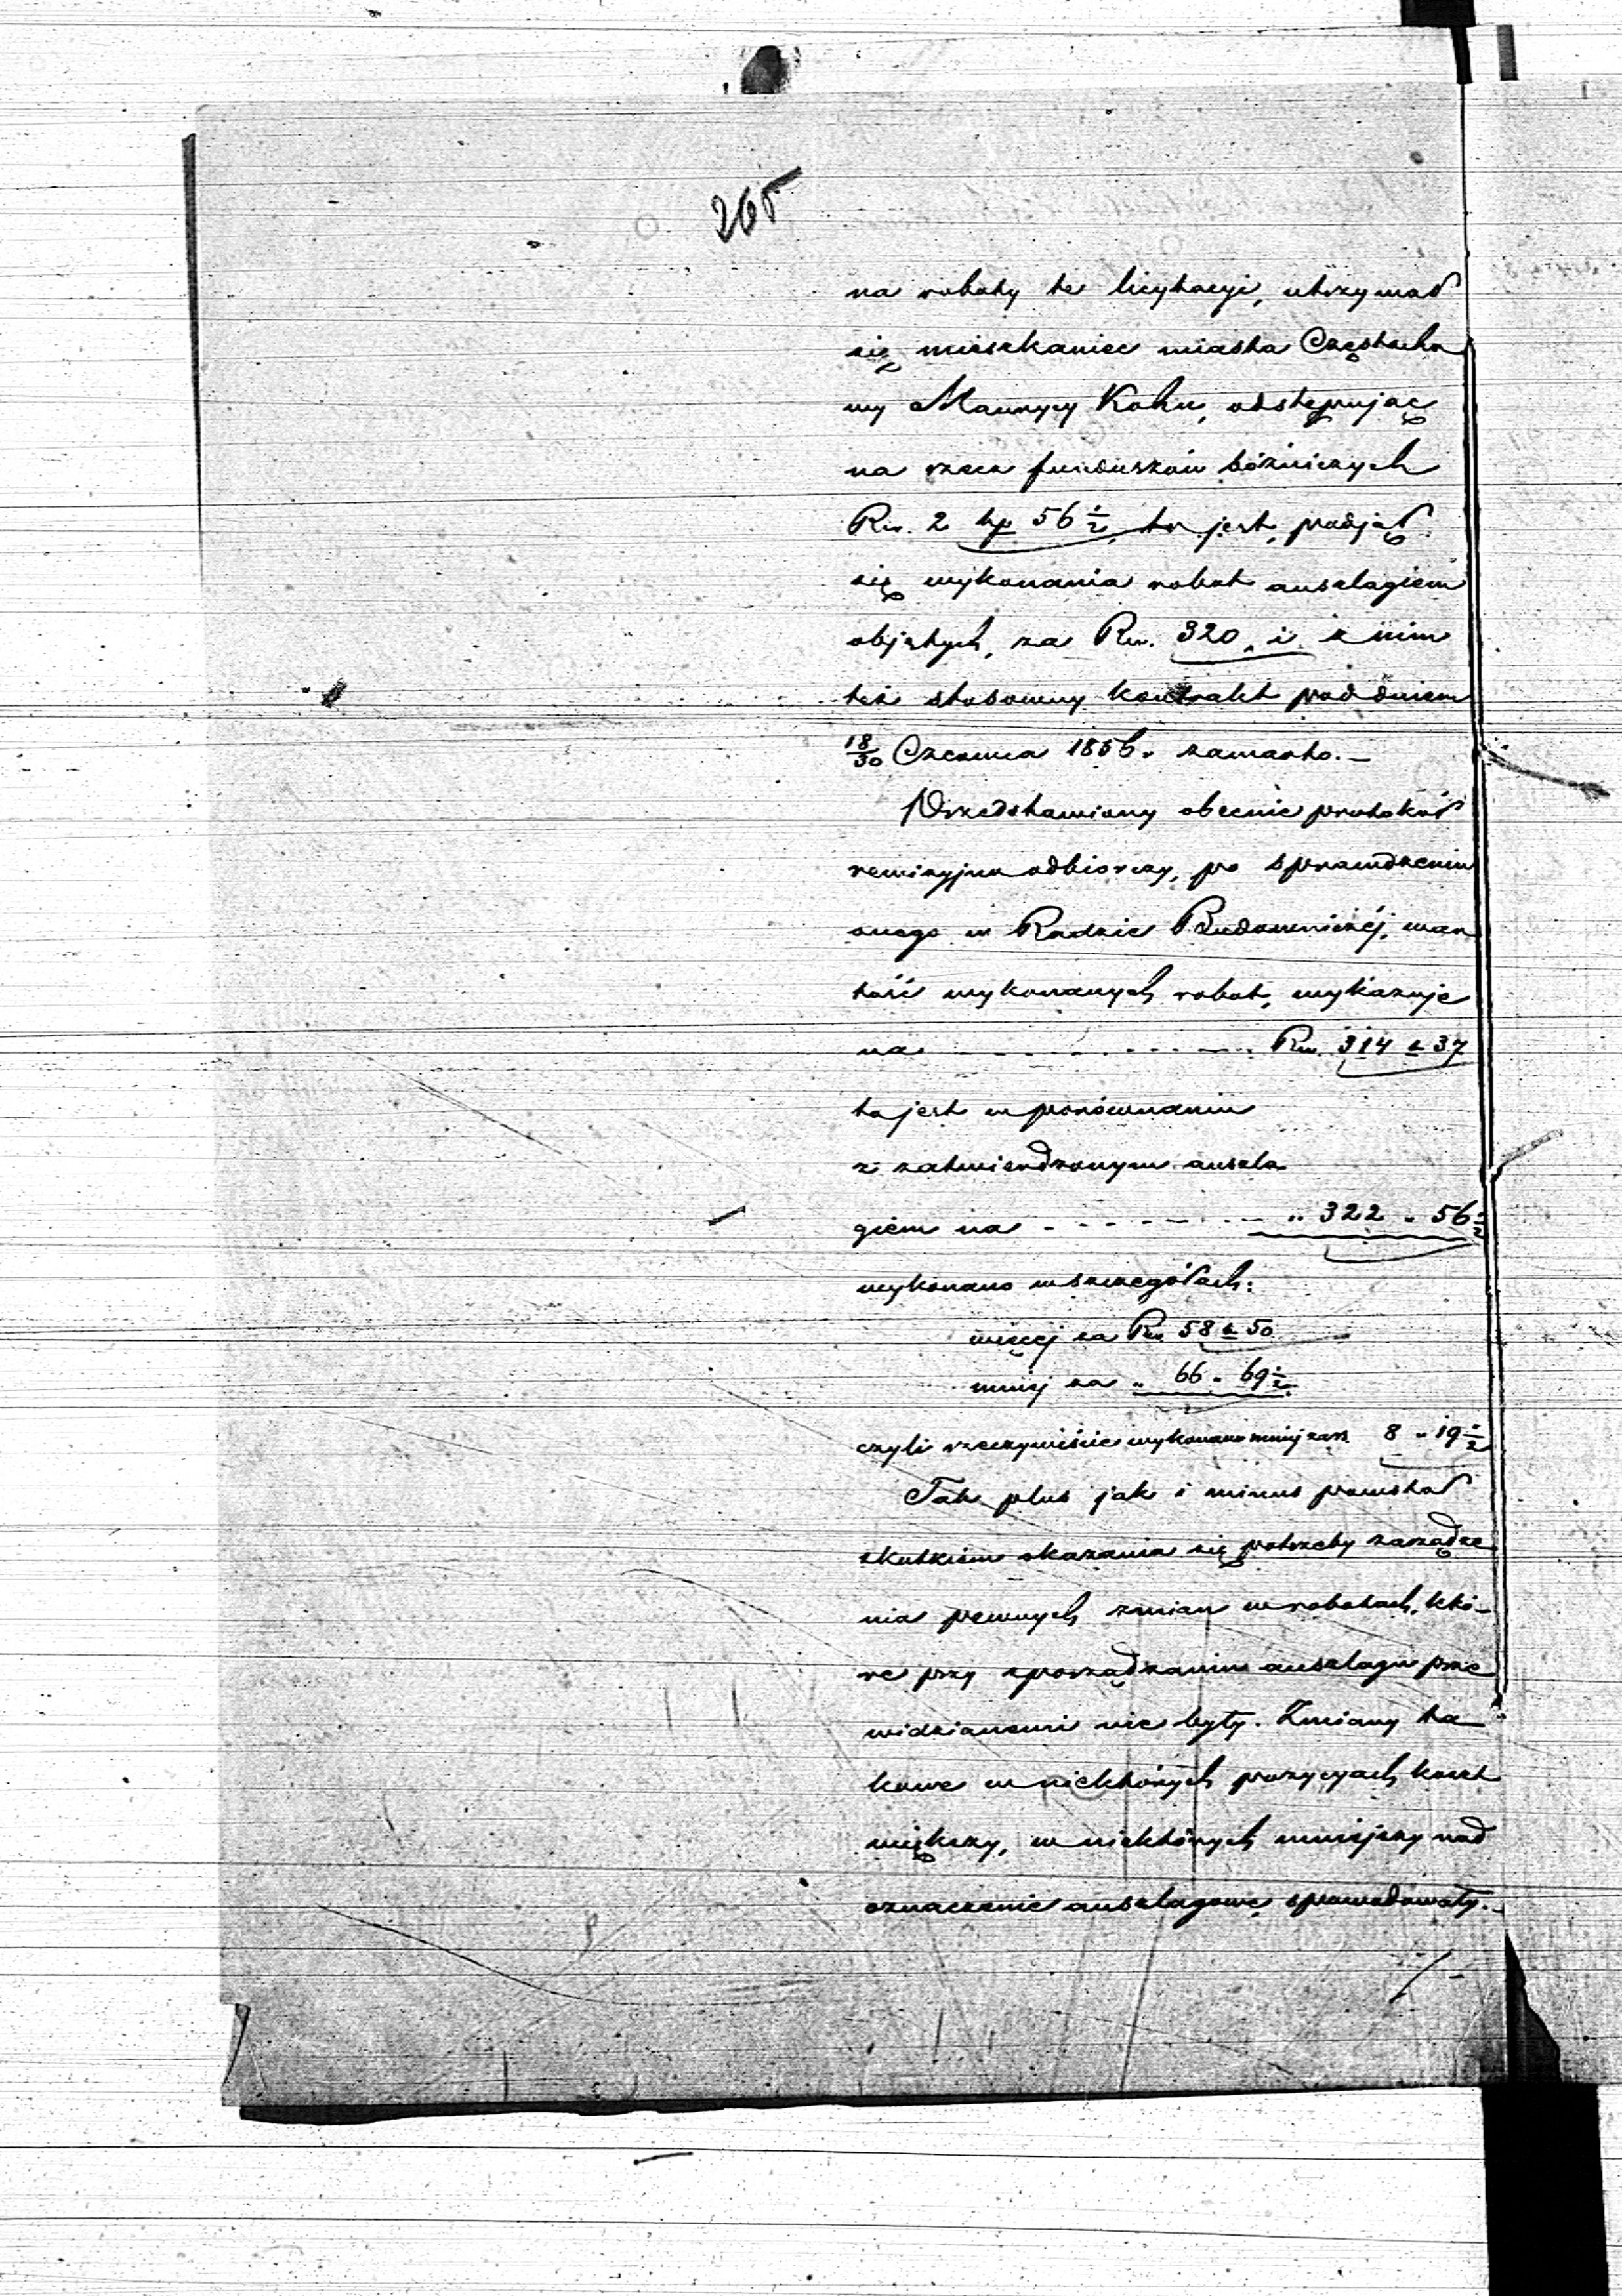 265
na roboty te licytacyi, utrzymał
się mieszkaniec miasta Częstocho
wy Maurycy Kohn, odstępując
na rzecz funduszów bóżniczych
Rs. 2 kp 56 1/2, to jest, podjął
się wykonania robot anszlagiem
objętych, za Rs. 320, i z nim
też stosowny kontrakt pod dniem
18/30 Czerwca 1856 r. zawarto.—
Przedstawiony obecnie protokół
rewizyjno odbiorczy, po sprawdzeniu
onego w Radzie Budowniczéj, war
tość wykonanych robot, wykazuje
na - - - - - - - - - - Rs. 314 k 37
to jest w porównaniu
z zatwierdzonym anszla
giem na - - - - - - - - - „ 322 „ 56 1/2
wykonano w szczegółach:
więcej za Rs 58 k 50
mniej za „ 66 „ 69 1/2
czyli rzeczywiście wykonano mniej za rs. 8 „ 19 1/2
Tak plus jak i minus powstał
skutkiem okazania się potrzeby zarządze
nia pewnych zmian w robotach, któ-
re przy sporządzaniu anszlagu prze
widzianemi nie były. Zmiany ta
kowe w niektórych pozycyach koszt
większy, w niektórych mniejszy nad
oznaczenie anszlagowe spowodowały.—